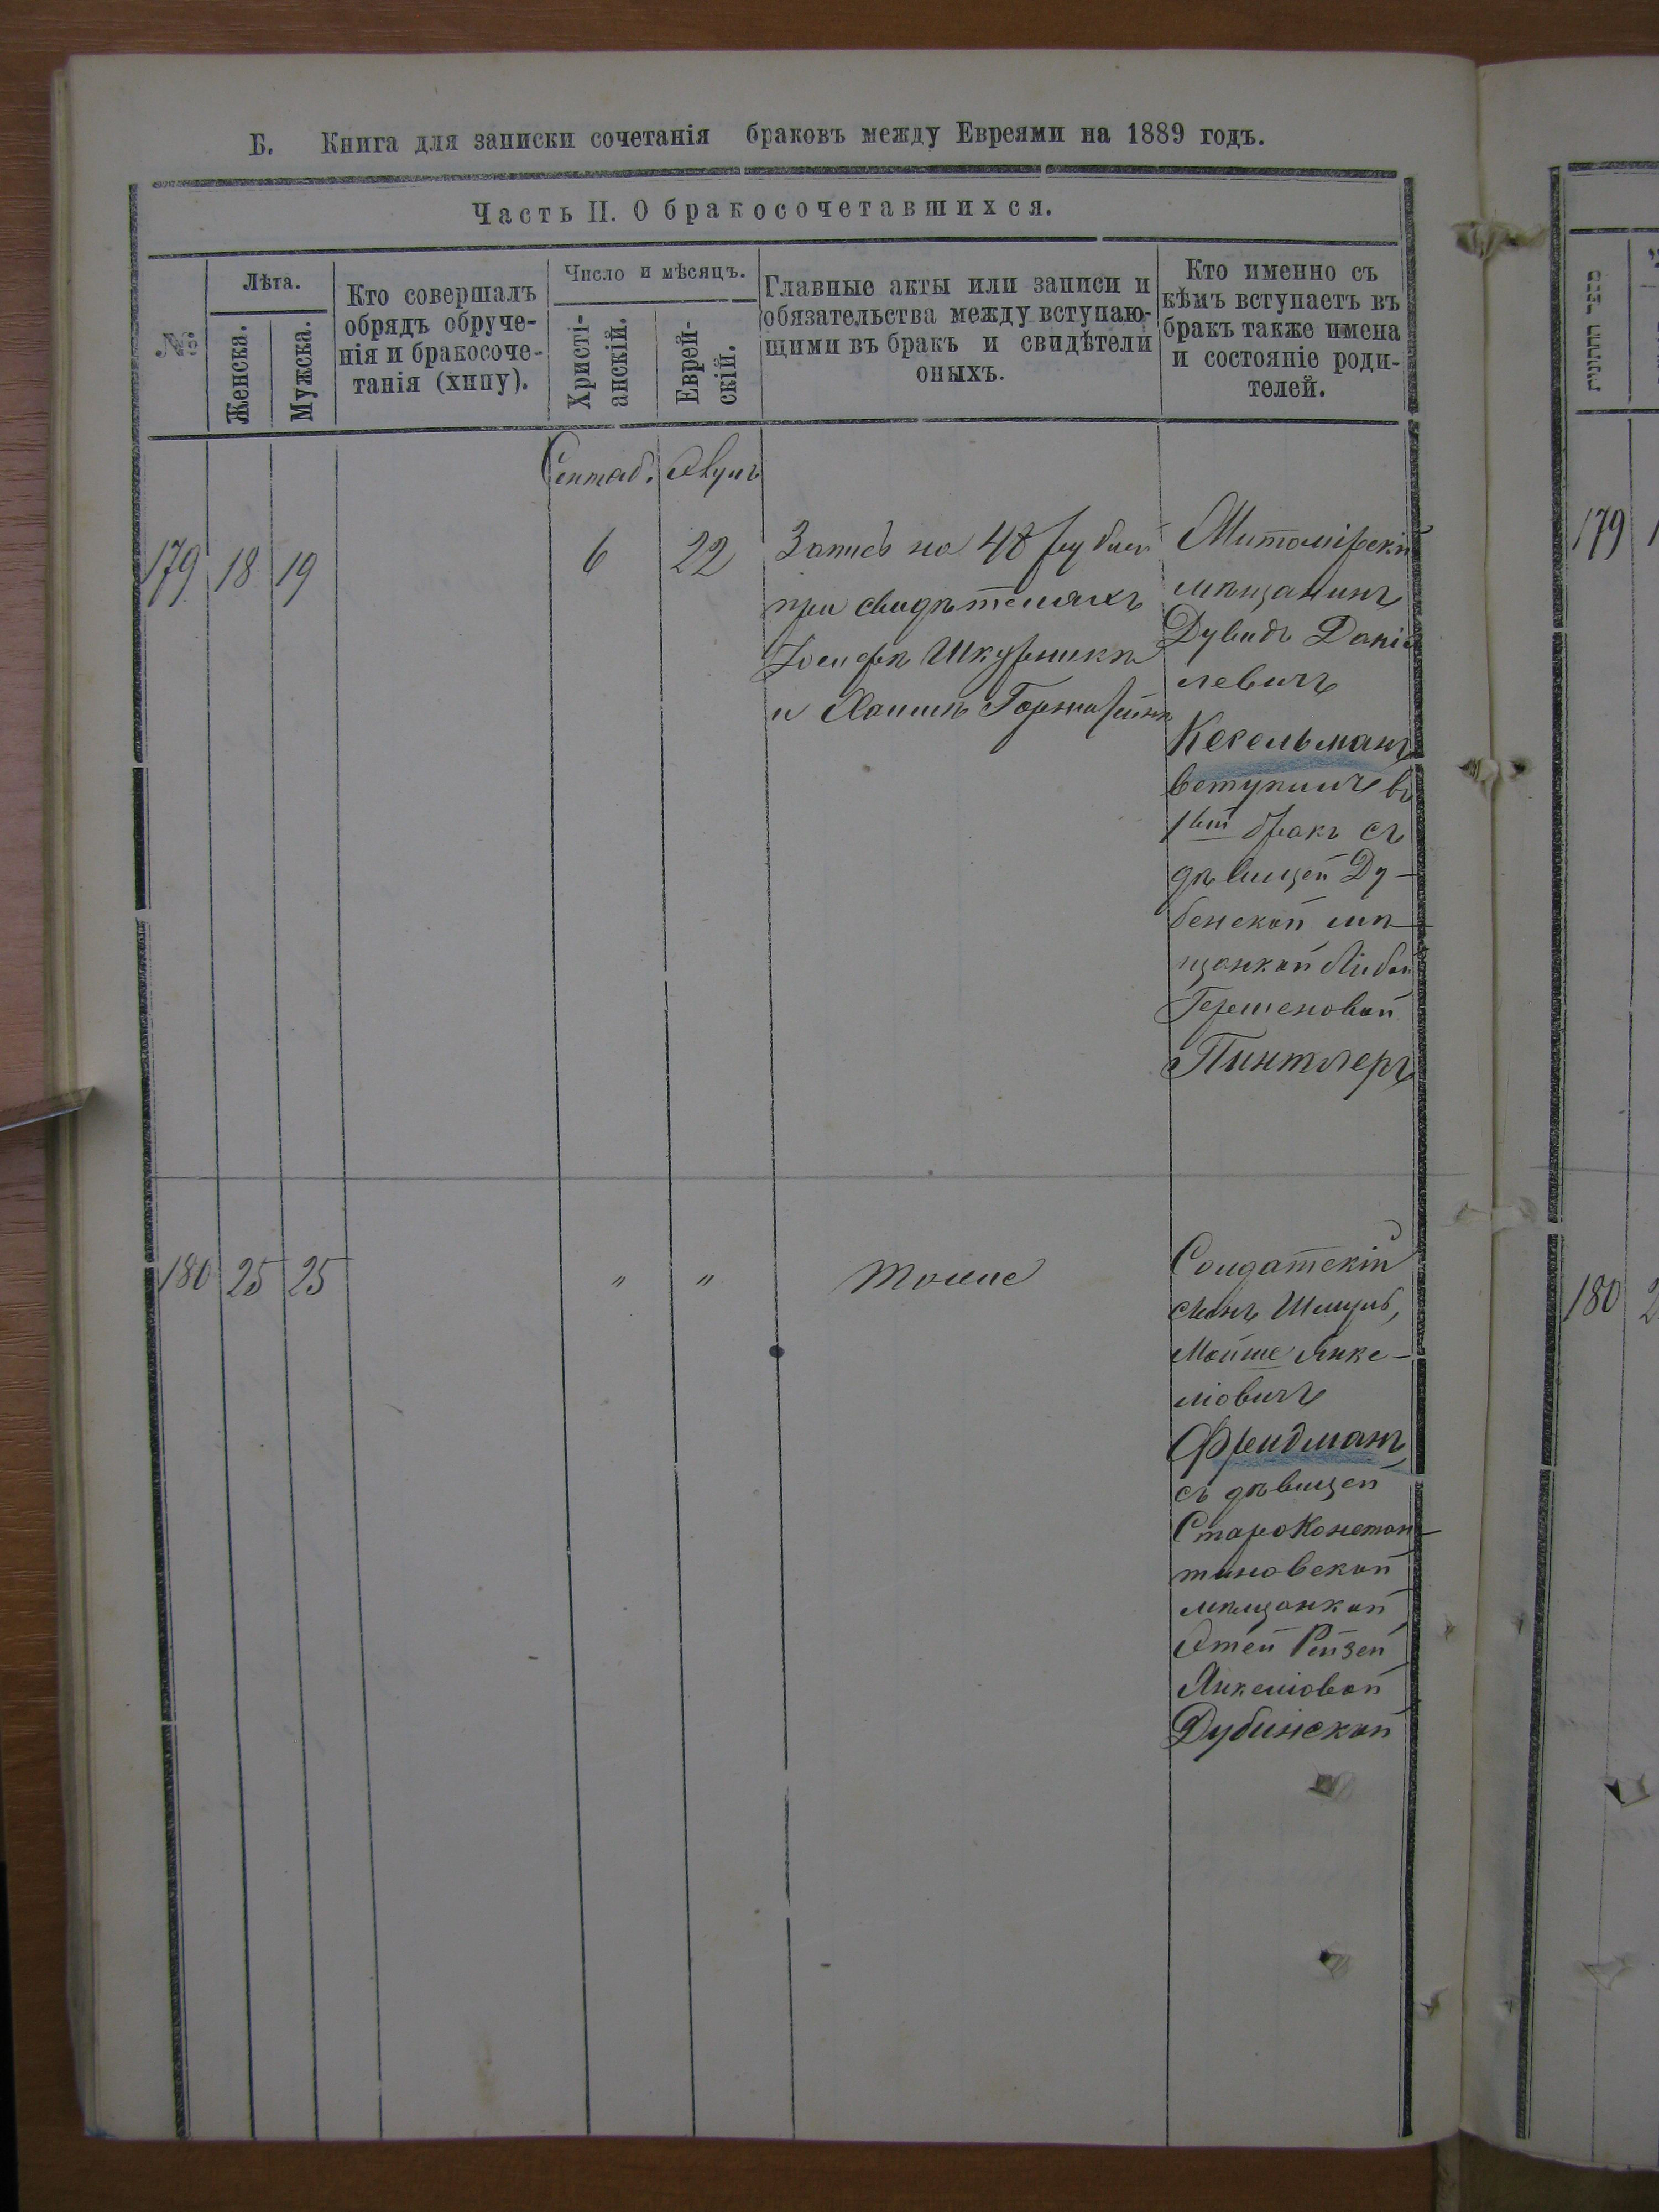 Б. Книга для записки сочетанія браковъ между Евреями на 1889 годъ.
Часть II. О бракосочетавшихся.
№
Лѣта.
Женска.
Мужска.
Кто совершалъ
обрядъ обруче-
нія и бракосоче-
танія (хипу).
Число и мѣсяцъ.
Христі-
анскій.
Еврей-
скій.
Главные акты или записи и
обязательства между вступаю-
щими въ бракъ и свидѣтели
оныхъ.
Кто именно съ
кѣмъ вступаетъ въ
бракъ также имена
и состояніе роди-
телей.
Сентяб. Элулъ
179 18 19 6 22
Запись на 48 рублей
при свидѣтеляхъ
Іосифѣ Шкурникѣ
и Хаимѣ
Житомірскій
мѣщанинъ
Дувидъ Даніе
левичъ
Кесельманъ
вступилъ въ
1вый бракъ съ
дѣвицей Ду-
бенской мѣ-
щанкой Либой
Гершеновой
Пинтлеръ
180 25 25 " " тоже
Солдатскій
сынъ Шмуль,
Мойше Янке-
ліовичъ
Фридманъ
съ дѣвицей
СтароКонстан-
тиновской
мѣщанкой
Этей Рейзей
Янкеліовой
Дубинской
179
180 2